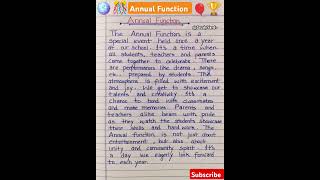 Annual Function
Annual Function
The Annual Function is a
special event held once a year
at our school. It's a time when
all students, teachers and parents
come together to celebrate. There
are performances like drama, songs
etc. prepared by students. The
atmosphere is filled with excitement
and joy. We get to showcase our
talents and creativity. It's a
chance to bond with classmates
and make memories. Parents and
teachers alike beam with pride
as they watch the students showcase
their skills and hard work. The
Annual function is not just about
entertainment, but also about
unity and community spirit. It's
a day we eagerly look forward
to each year.
Subscribe